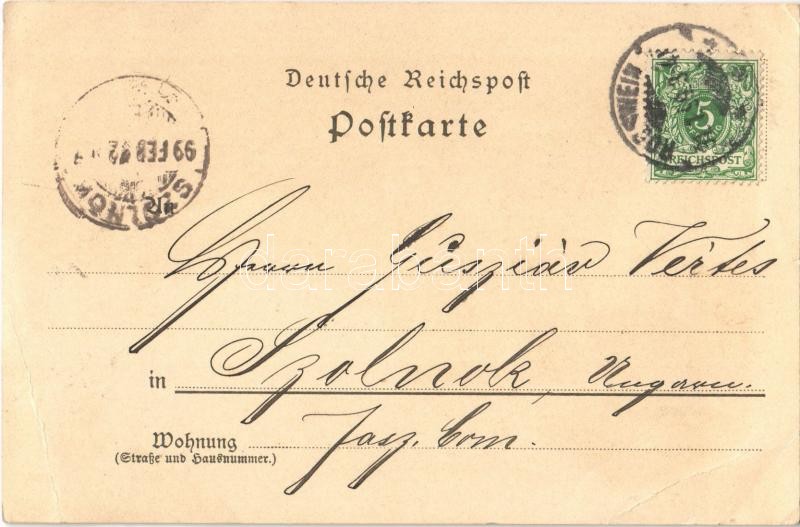 Deutsche Reichspost
Postkarte
5
REICHSPOST
SZOLNOK
99 FEB 12
An
Herrn Gusziáv Vértes
in Szolnok, Ungarn.
Wohnung Jasz. Com.
(Straße und Hausnummer.)
darabanth